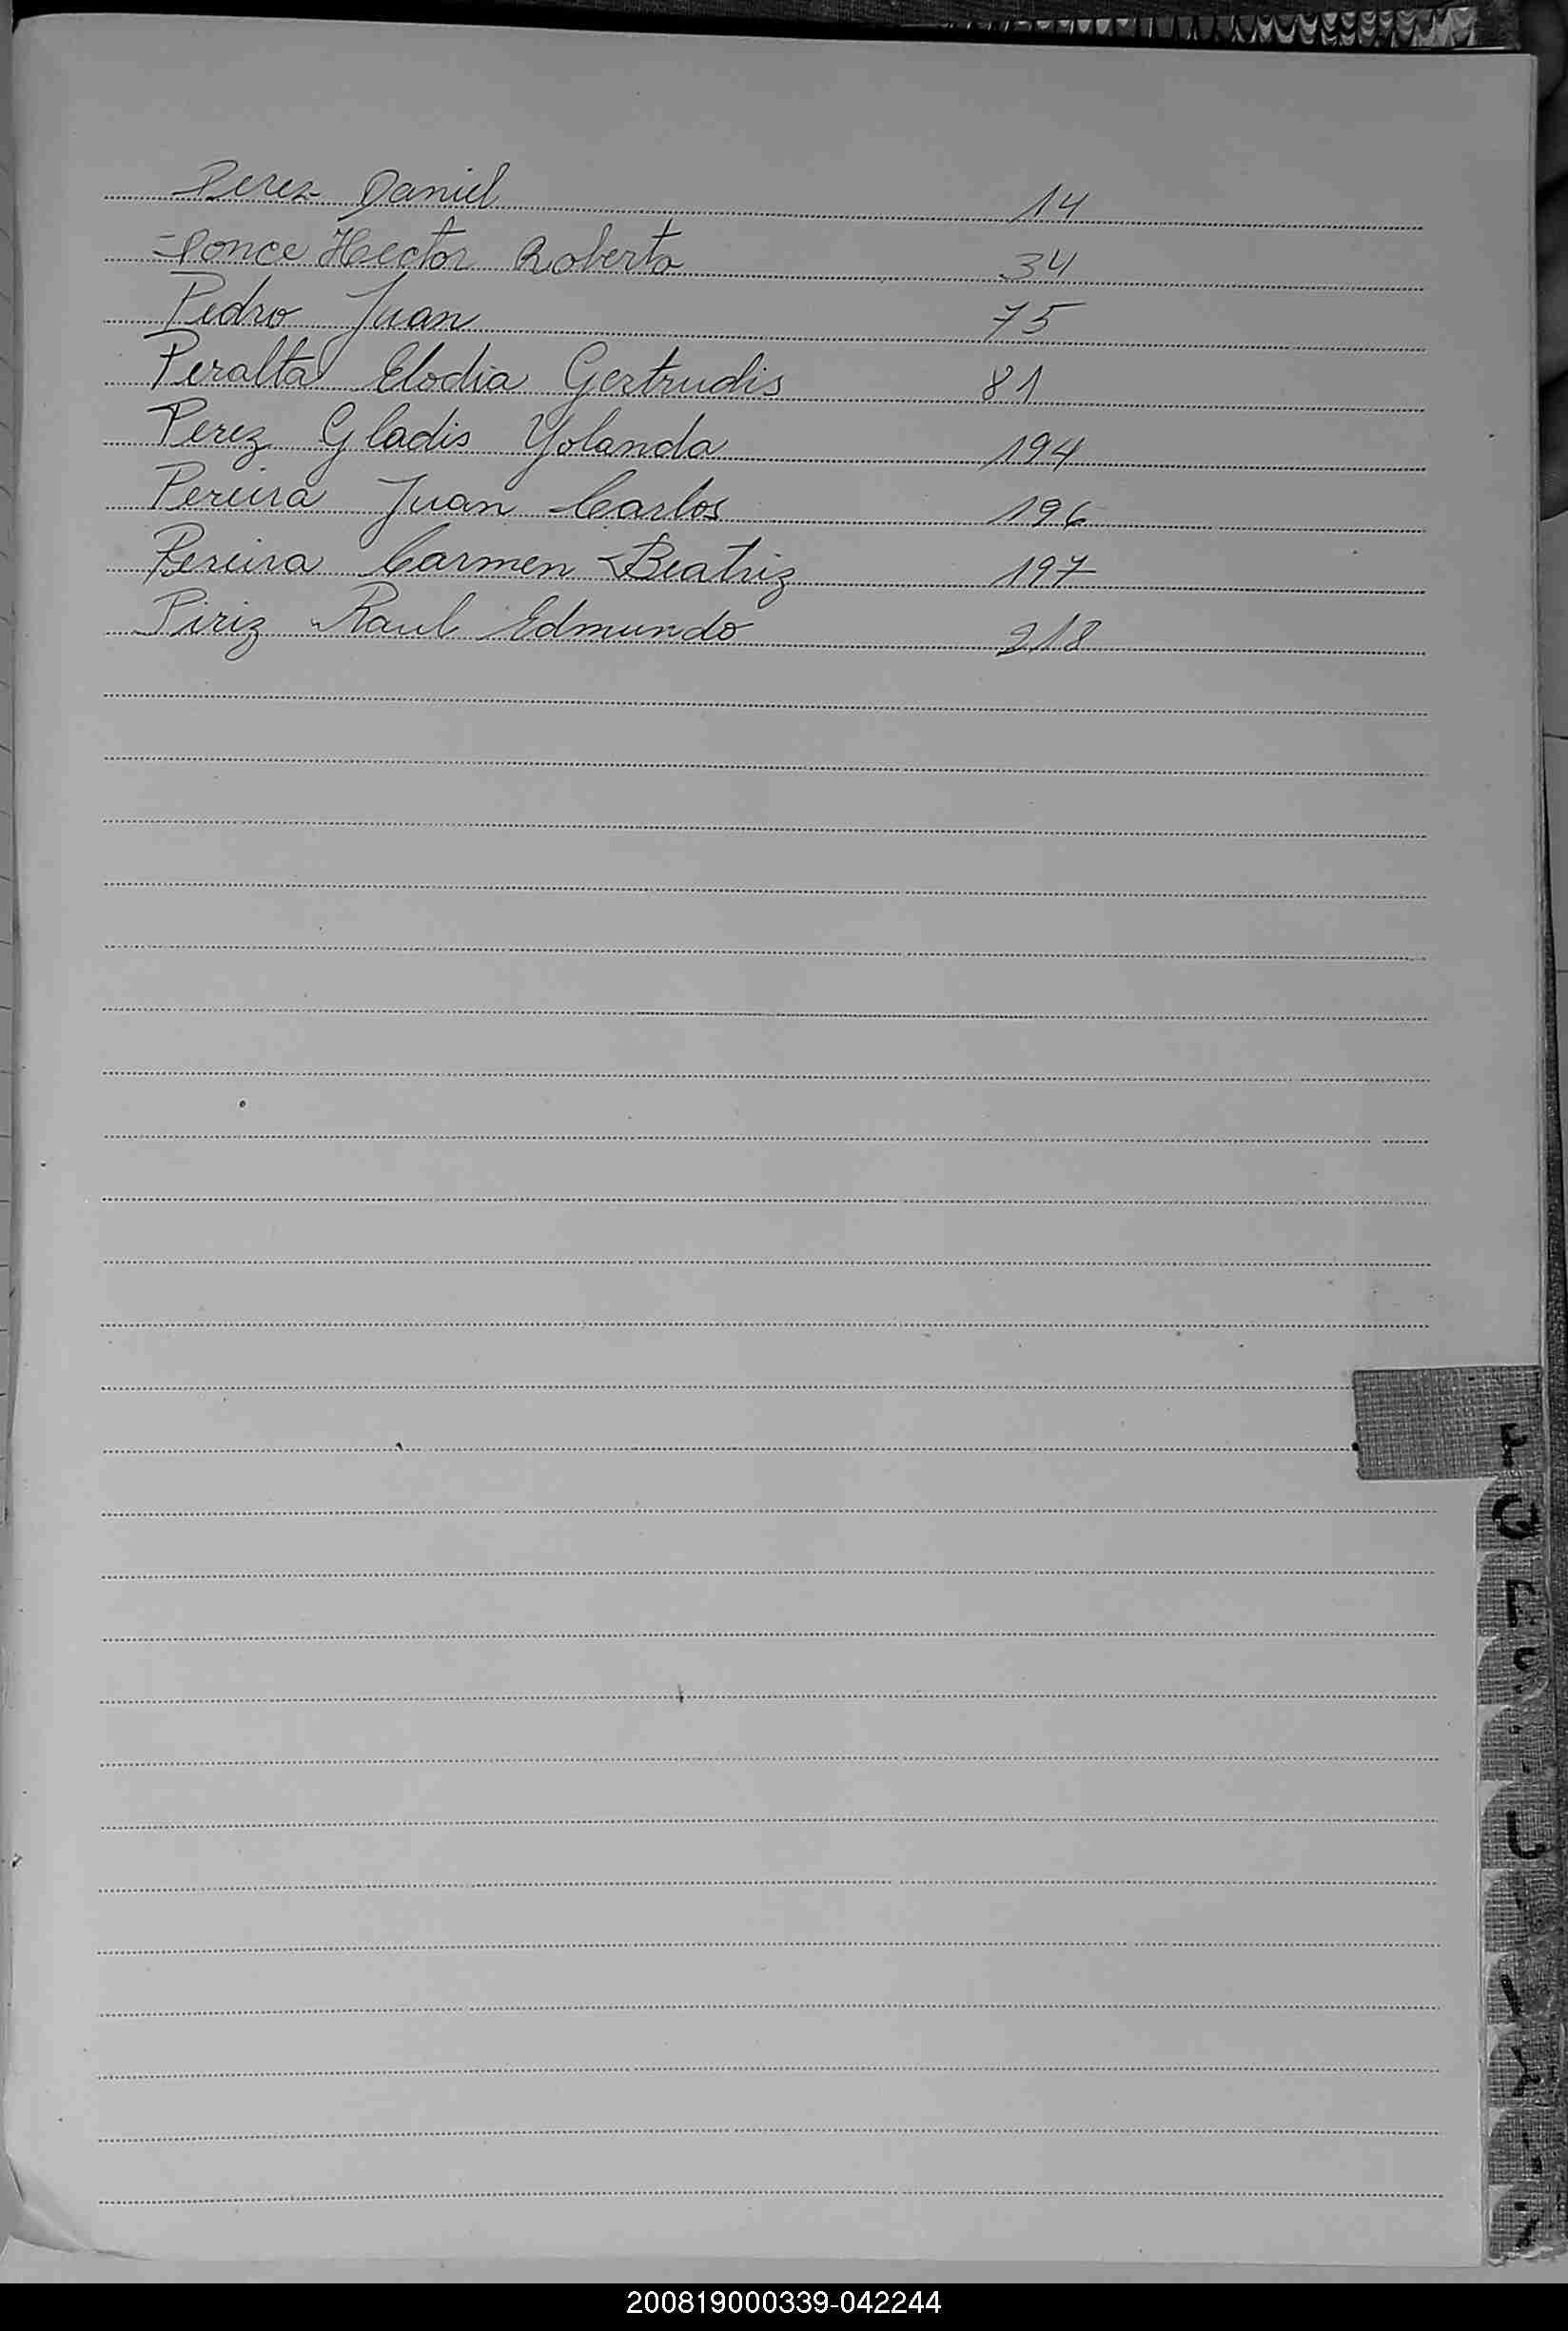 Perez Daniel 14
Ponce Hector Roberto 34
Pedro Juan 75
Peralta Elodia Gertrudis 81
Perez Gladis Yolanda 194
Pereira Juan Carlos 196
Pereira Carmen Beatriz 197
Piriz Raul Edmundo 218
Q
200819000339-042244